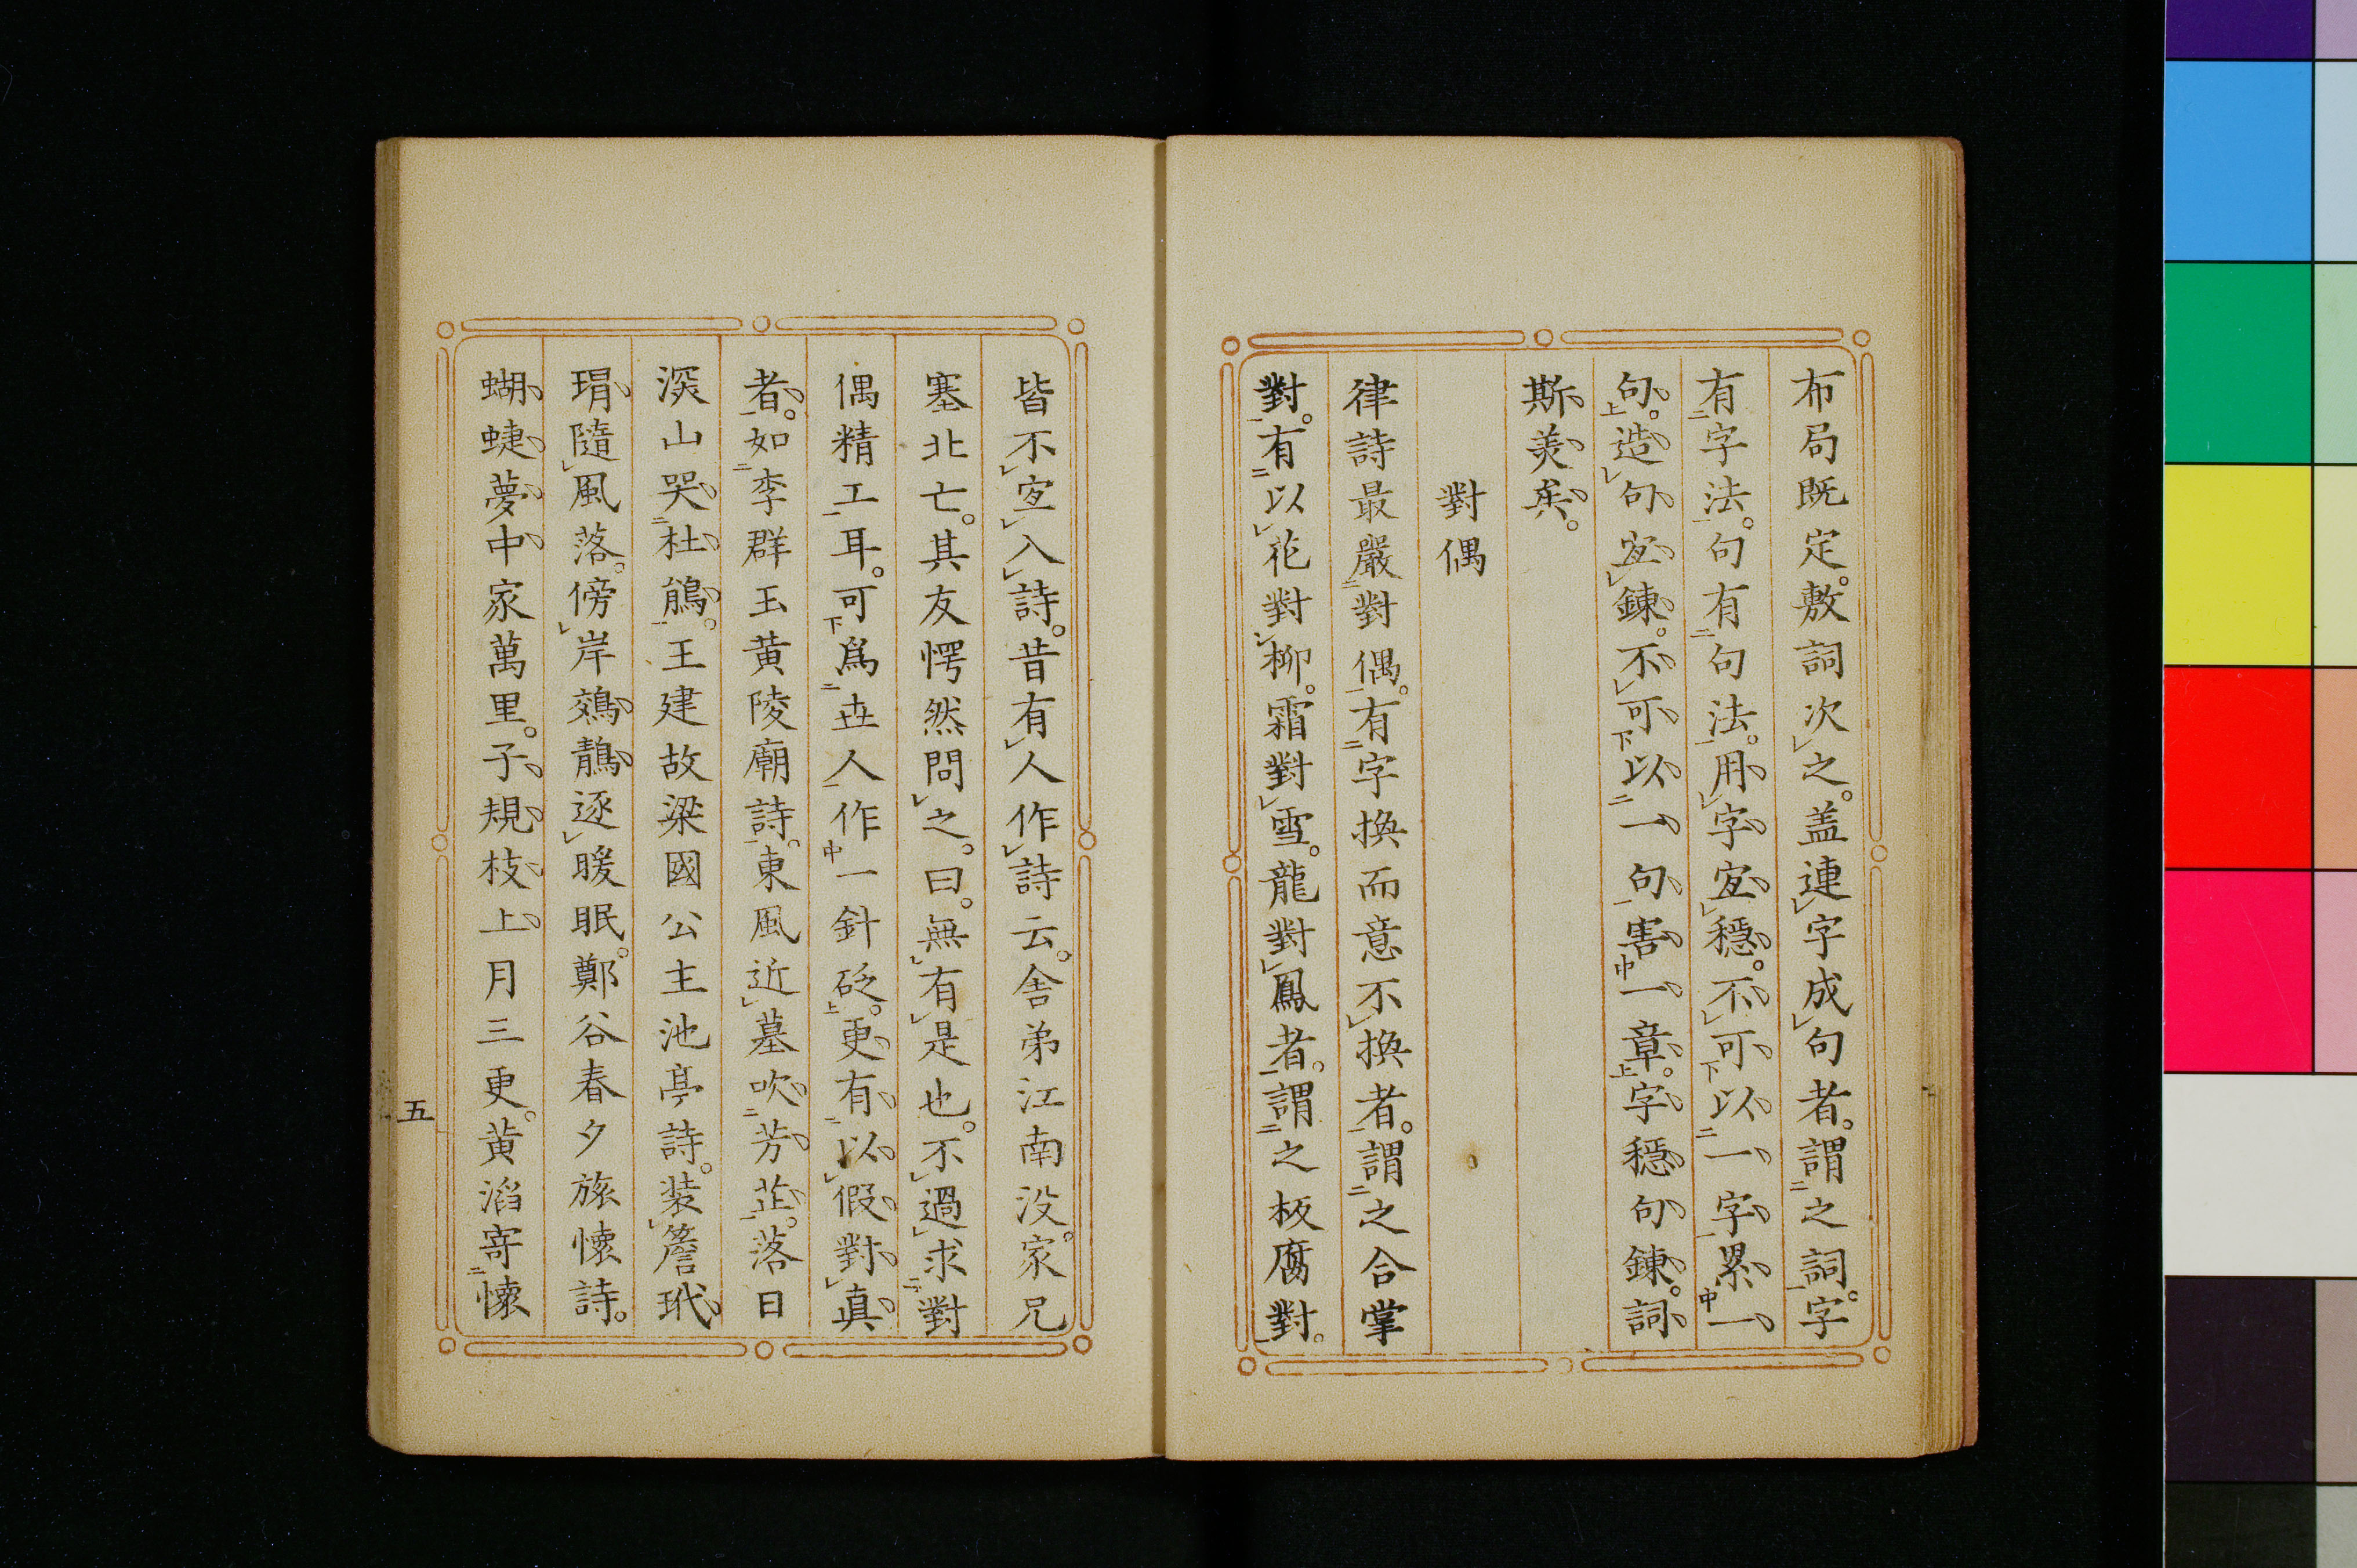 布局既定。敷詞次之。盖連字成句者。謂之詞。字
有字法。句有句法。用字宜穩。不可以一字累一
句。造句宜鍊。不可以一句害一章。字穩句鍊。詞
斯美矣。
對偶
律詩最嚴對偶。有字換而意不換者。謂之合掌
對。有以花對柳。霜對雪。龍對鳳者。謂之板腐對。
皆不宜入詩。昔有人作詩云。舍弟江南没。家兄
塞北亡。其友愕然問之。曰。無有是也。不過求對
偶精工耳。可爲世人作一針砭。更有以假對真
者。如李群玉黄陵廟詩。東風近墓吹芳芷。落日
深山哭杜鵑。王建故梁國公主池亭詩。装簷玳
瑁隨風落。傍岸鵁鶄逐暖眠。鄭谷春夕旅懷詩。
蝴蜨夢中家萬里。子規枝上月三更。黄滔寄懷
五